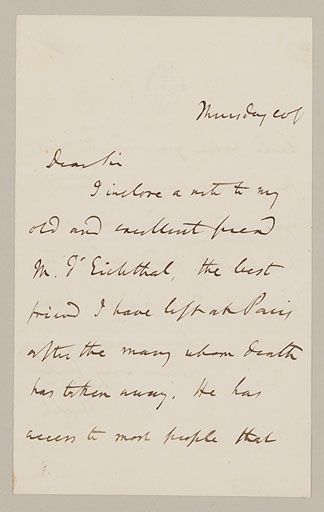 Thursday
Dear Sir
I inclose a note to my
old and excellent friend
M. G. d' Eichthal, the best
friend I have left at Paris
after the many whom death
has taken away. He has
access to most people that